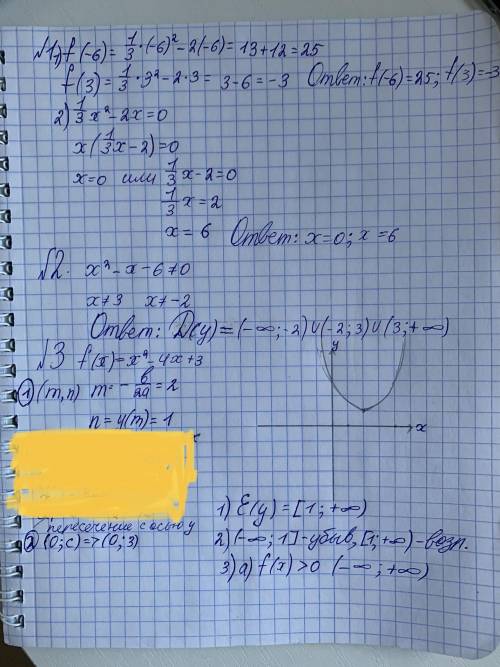 №1 1) f(-6) = 1/3 · (-6)² - 2(-6) = 13 + 12 = 25
f(3) = 1/3 · 3² - 2 · 3 = 3 - 6 = -3 Ответ: f(-6) = 25; f(3) = -3
2) 1/3 x² - 2x = 0
x(1/3 x - 2) = 0
x = 0 или 1/3 x - 2 = 0
1/3 x = 2
x = 6 Ответ: x = 0; x = 6
№2. x² - x - 6 ≠ 0
x ≠ 3 x ≠ -2
Ответ: D(y) = (-∞; -2) ∪ (-2; 3) ∪ (3; +∞)
№3 f(x) = x² - 4x + 3
y
① (m, n) m = - b/2a = 2
n = y(m) = 1
x
пересечение с осью y
② (0; c) => (0; 3)
1) E(y) = [1; +∞)
2) (-∞; 1] - убыв, [1; +∞) - возр.
3) а) f(x) > 0 (-∞; +∞)